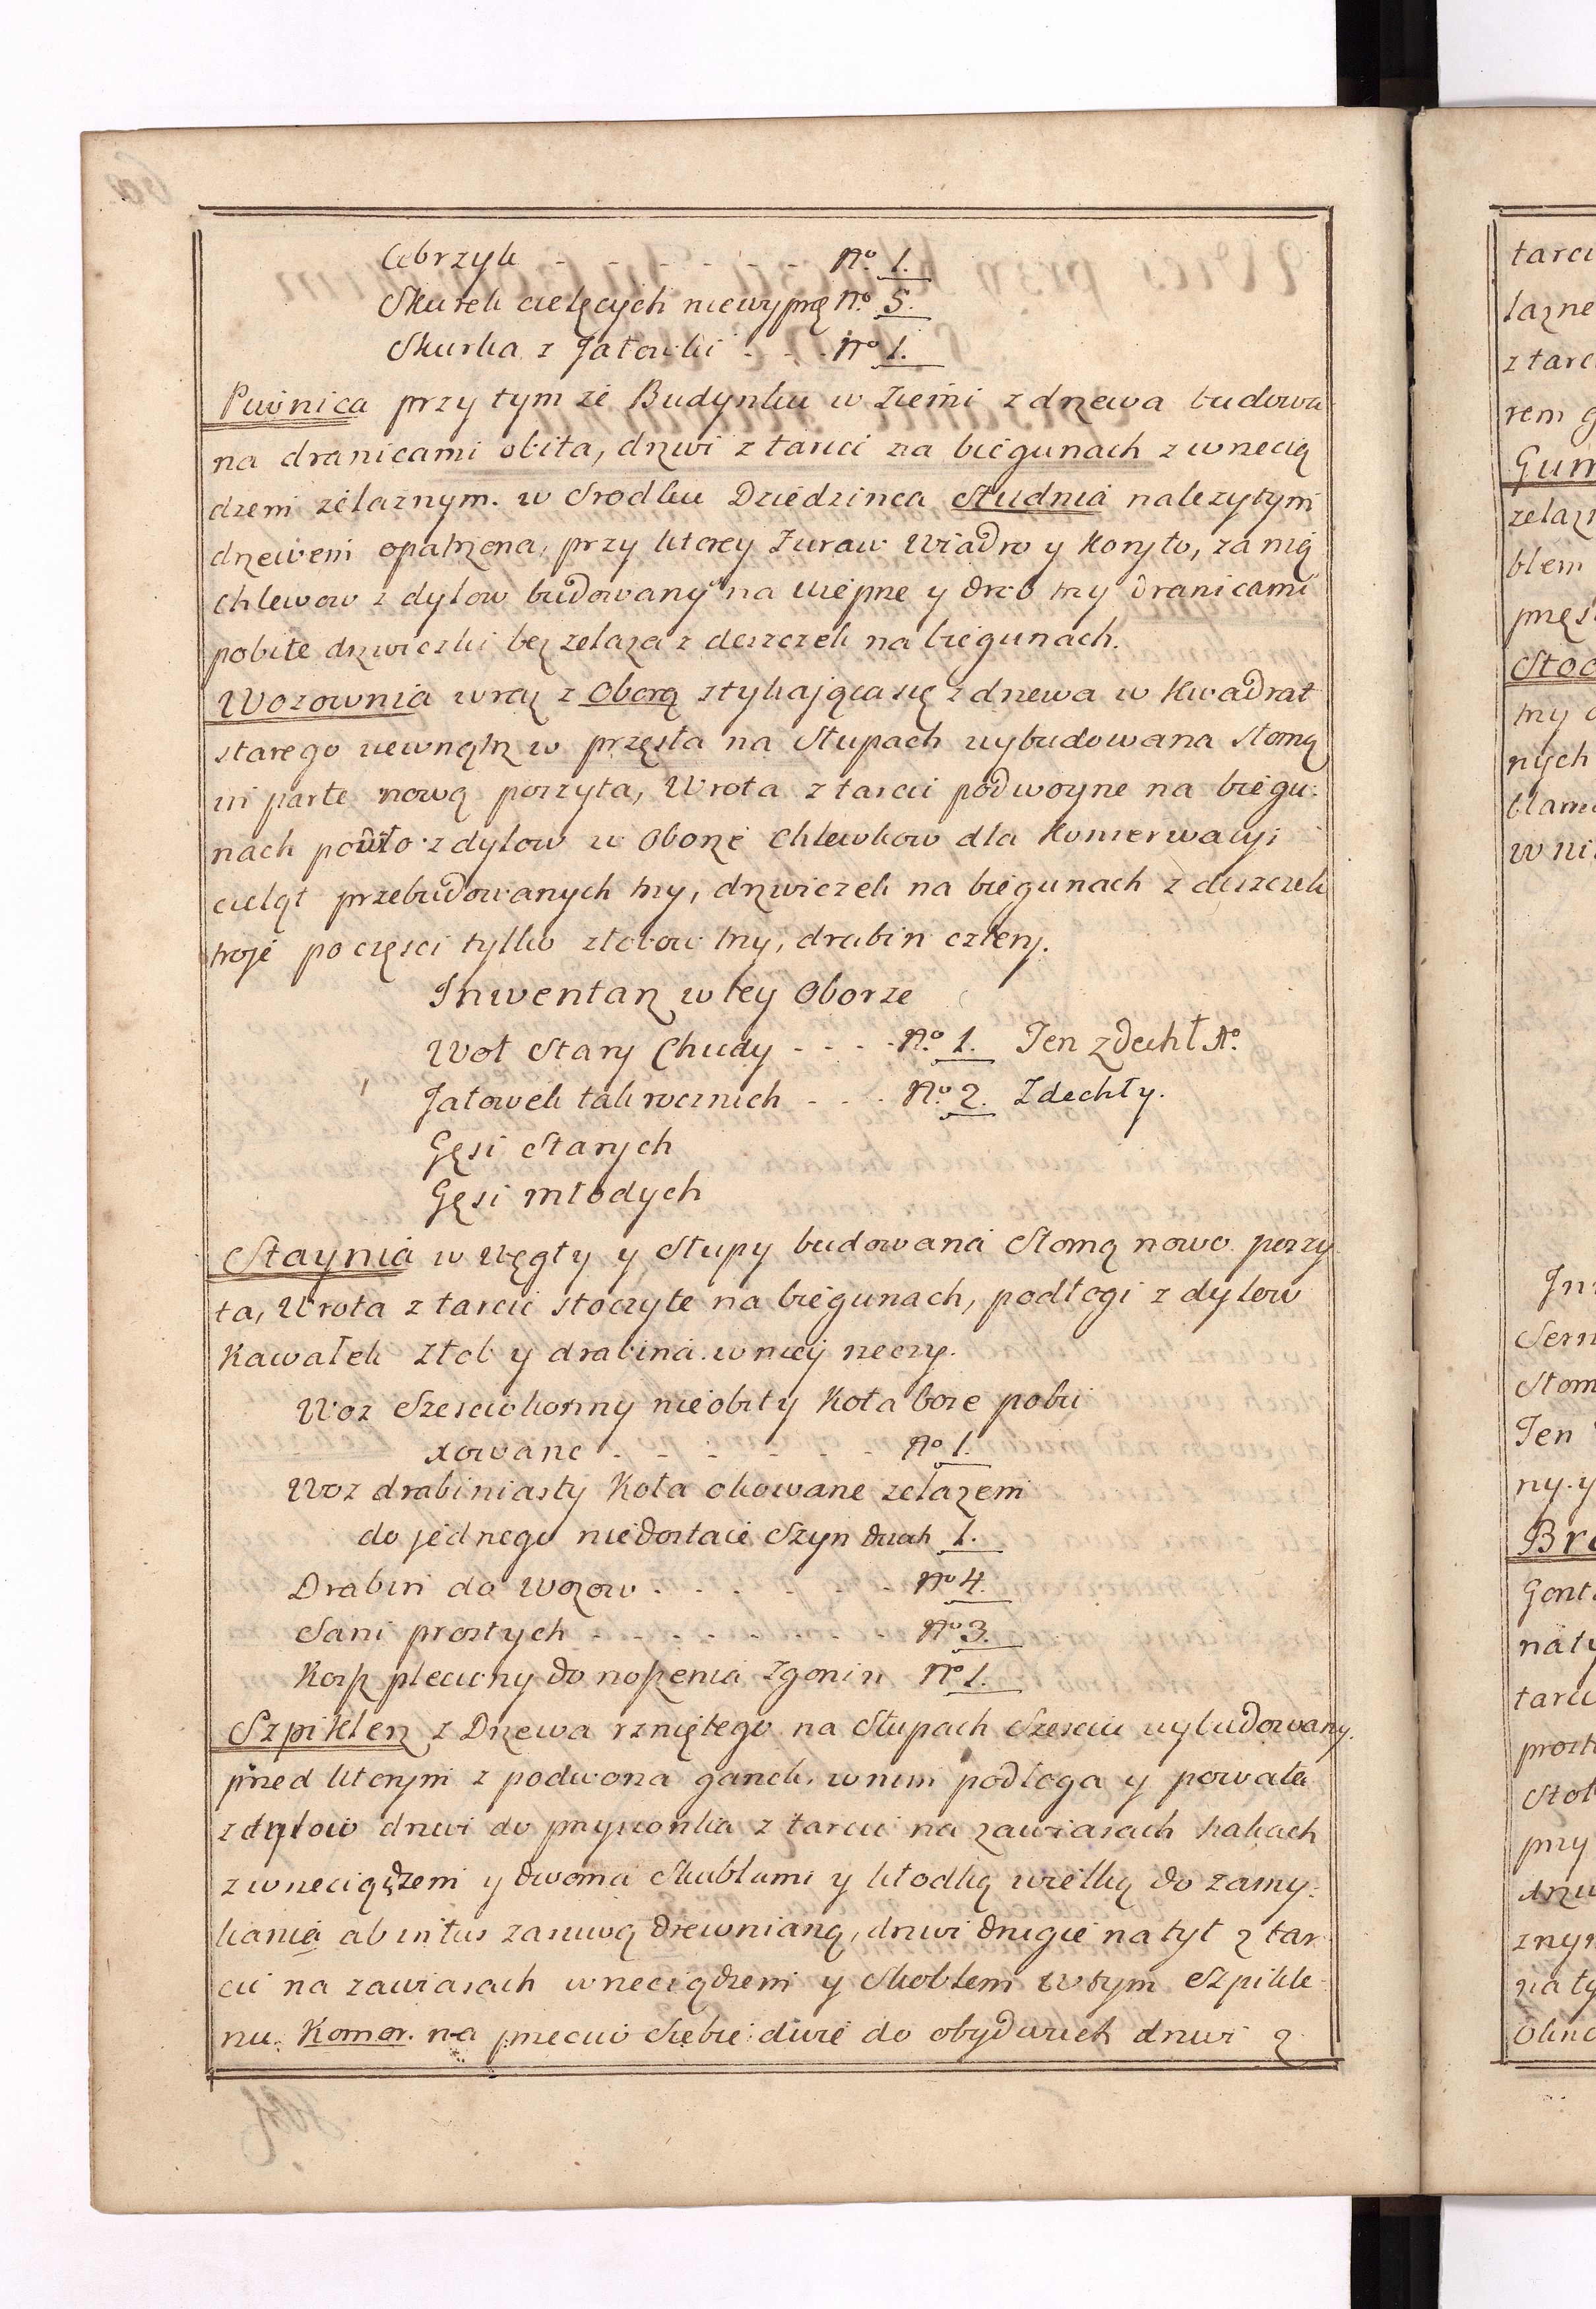 Cebrzyk - - - - - - - No. 1.
Skurek cielęcych niewyprę No. 5.
Skurka z Jałowki - - - No 1.
Piwnica przy tym ze Budynku w Ziemi z drzewa budowa
na dranicami obita, drzwi z tarcic na biegunach z wrzecią
dzem żelaznym. w Srodku Dziedzinca Studnia nalezytym
drzewem opatrzona, przy ktorey Zuraw Wiadro y Koryto, za nią
chlewow z dylow budowany na wieprze y drob trzy Dranicami
pobite drzwiczki bez zelaza z deszczek na biegunach.
Wozownia wraz z Oborą stykaiąca się z drzewa w Kwadrat
starego wewnątrz w przęsła na Słupach wybudowana słomą
in parte nową poszyta, Wrota z tarcic podwoyne na biegu-
nach z dylow w Oborze Chlewkow dla Konserwacyi
cieląt przebudowanych trzy, drzwiczek na biegunach z deszczek
troje po części tylko złobow trzy, drabin cztery.
Inwentarz w tey Oborze
Woł Stary Chudy - - - - No. 1. Ten zdechł No.
Jałowek tak rocznich - - - No. 2. Zdechły.
Gęsi Starych
Gęsi młodych
Staynia w Węgły y Słupy budowana Słomą nowo poszy
ta, Wrota z tarcic stoczyte na biegunach, podłogi z dylow
Kawałek Złob y drabina. w niey rzeczy.
Woz Szesciokonny nieobity Koła bose pobu
xowane - - - - - - No 1.
Woz drabiniasty Koła okowane zelazem
do jednego niedostaie Szyn dwuch 1.
Drabin do Wozow - - - - - - No 4.
Sani prostych - - - - - - - No 3.
Kosz pleciony do noszenia Zgonin No 1.
Szpiklerz z Drzewa rzniętego na Słupach Szesciu wybudowany
przed ktorym z podworza ganek. w nim podłoga y powała
z dylow drzwi do przysionka z tarcic na zawiasach hakach
z wrzeciądzem y dwoma Skublami y kłodką wielką do zamy-
kania ab intus zasuwą drewnianą, drzwi drugie na tył z tar
cic na zawiasach wrzeciądzem y Skoblem W tym Szpikle-
rzu. Komor. na przeciw Siebie dwie do obydwuch drzwi z